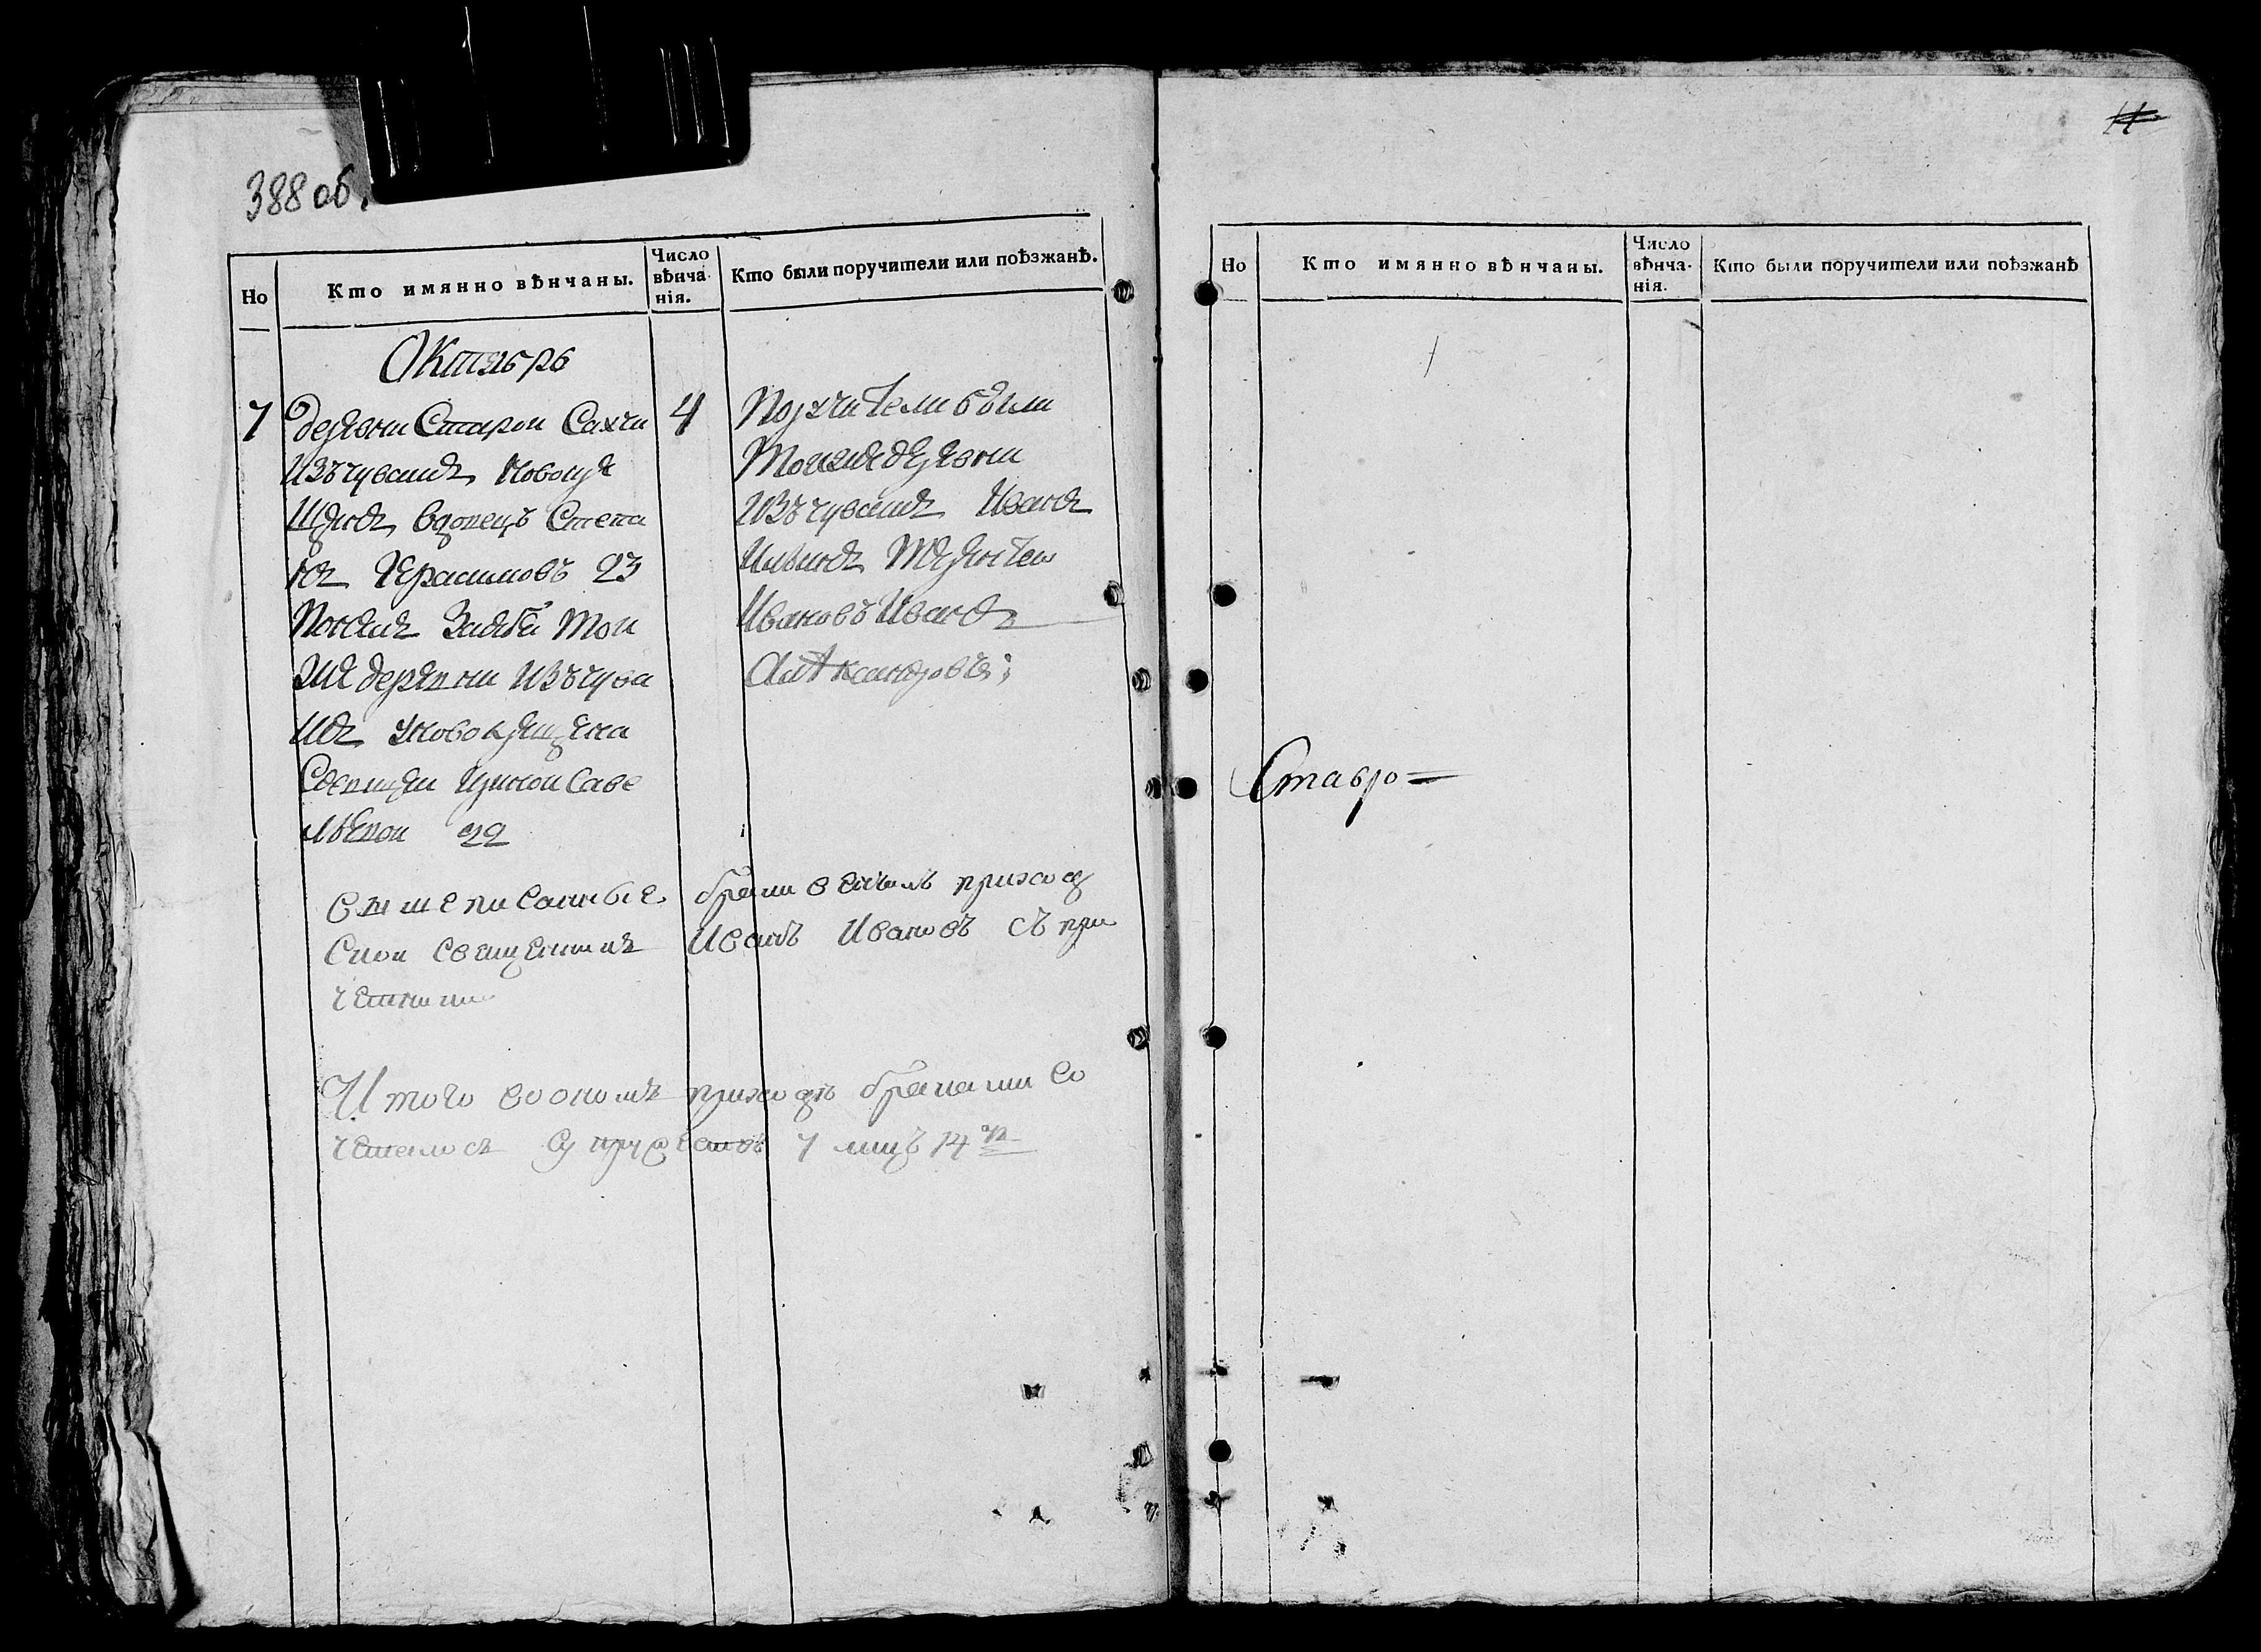 388 об.
Но
Кто имянно вѣнчаны.
Число вѣнча- нія.
Кто были поручители или поѣзжанѣ.
Октябрь
7 деревни Старои Сахчи 4
изъ чувашъ новокре
щенъ вдовецъ Степа
нъ Герасимовъ 23
понялъ за себя тои
же деревни изъ чува
шъ новокрещена
Ириной Саве
льевои 22
Поручители были
тоижже деревни
изъ чувашъ Иванъ
Терентеи
Ивановъ Иванъ
Александровъ;
вышеписанные браки венчалъ приход
скои священникъ Иванъ Ивановъ съ при
четники
Итого во ономъ приходѣ браками со
четалось супружествъ 7 лицъ 14
11
Но
Кто имянно вѣнчаны.
Число вѣнча- нія.
Кто были поручители или поѣзжанѣ
Ставро=